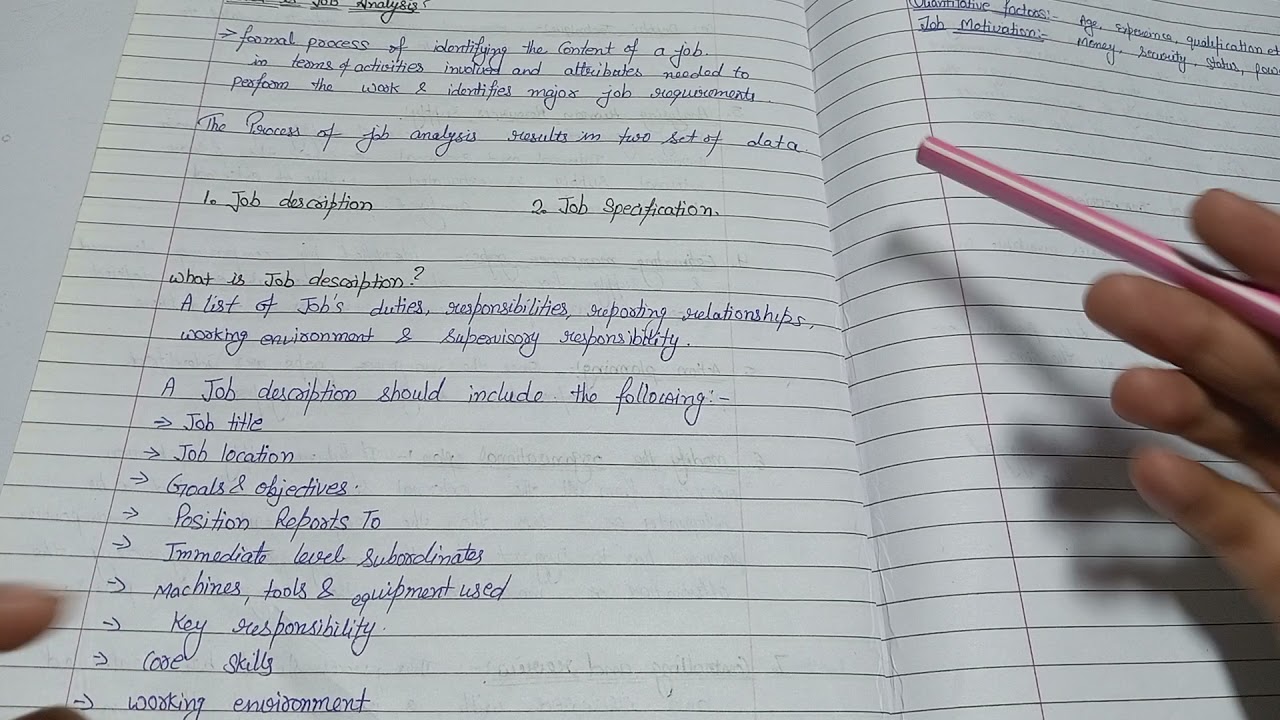 Job Analysis?
→ formal process of identifying the content of a job.
in terms of activities involved and attributes needed to
perform the work & identifies major job requirements.
The Process of job analysis results in two set of data.
1. Job description 2. Job Specification.
What is Job description?
A list of Job's duties, responsibilities, reporting relationships,
working environment & supervisory responsibility.
A Job description should include the following:-
→ Job title
→ Job location.
→ Goals & objectives.
→ Position Reports To
→ Immediate level subordinates
→ Machines, tools & equipment used
→ Key responsibility.
→ Core skills
→ working environment
Quantitative factors:- Age, experience, qualification
Job Motivation:- Money, security, status,